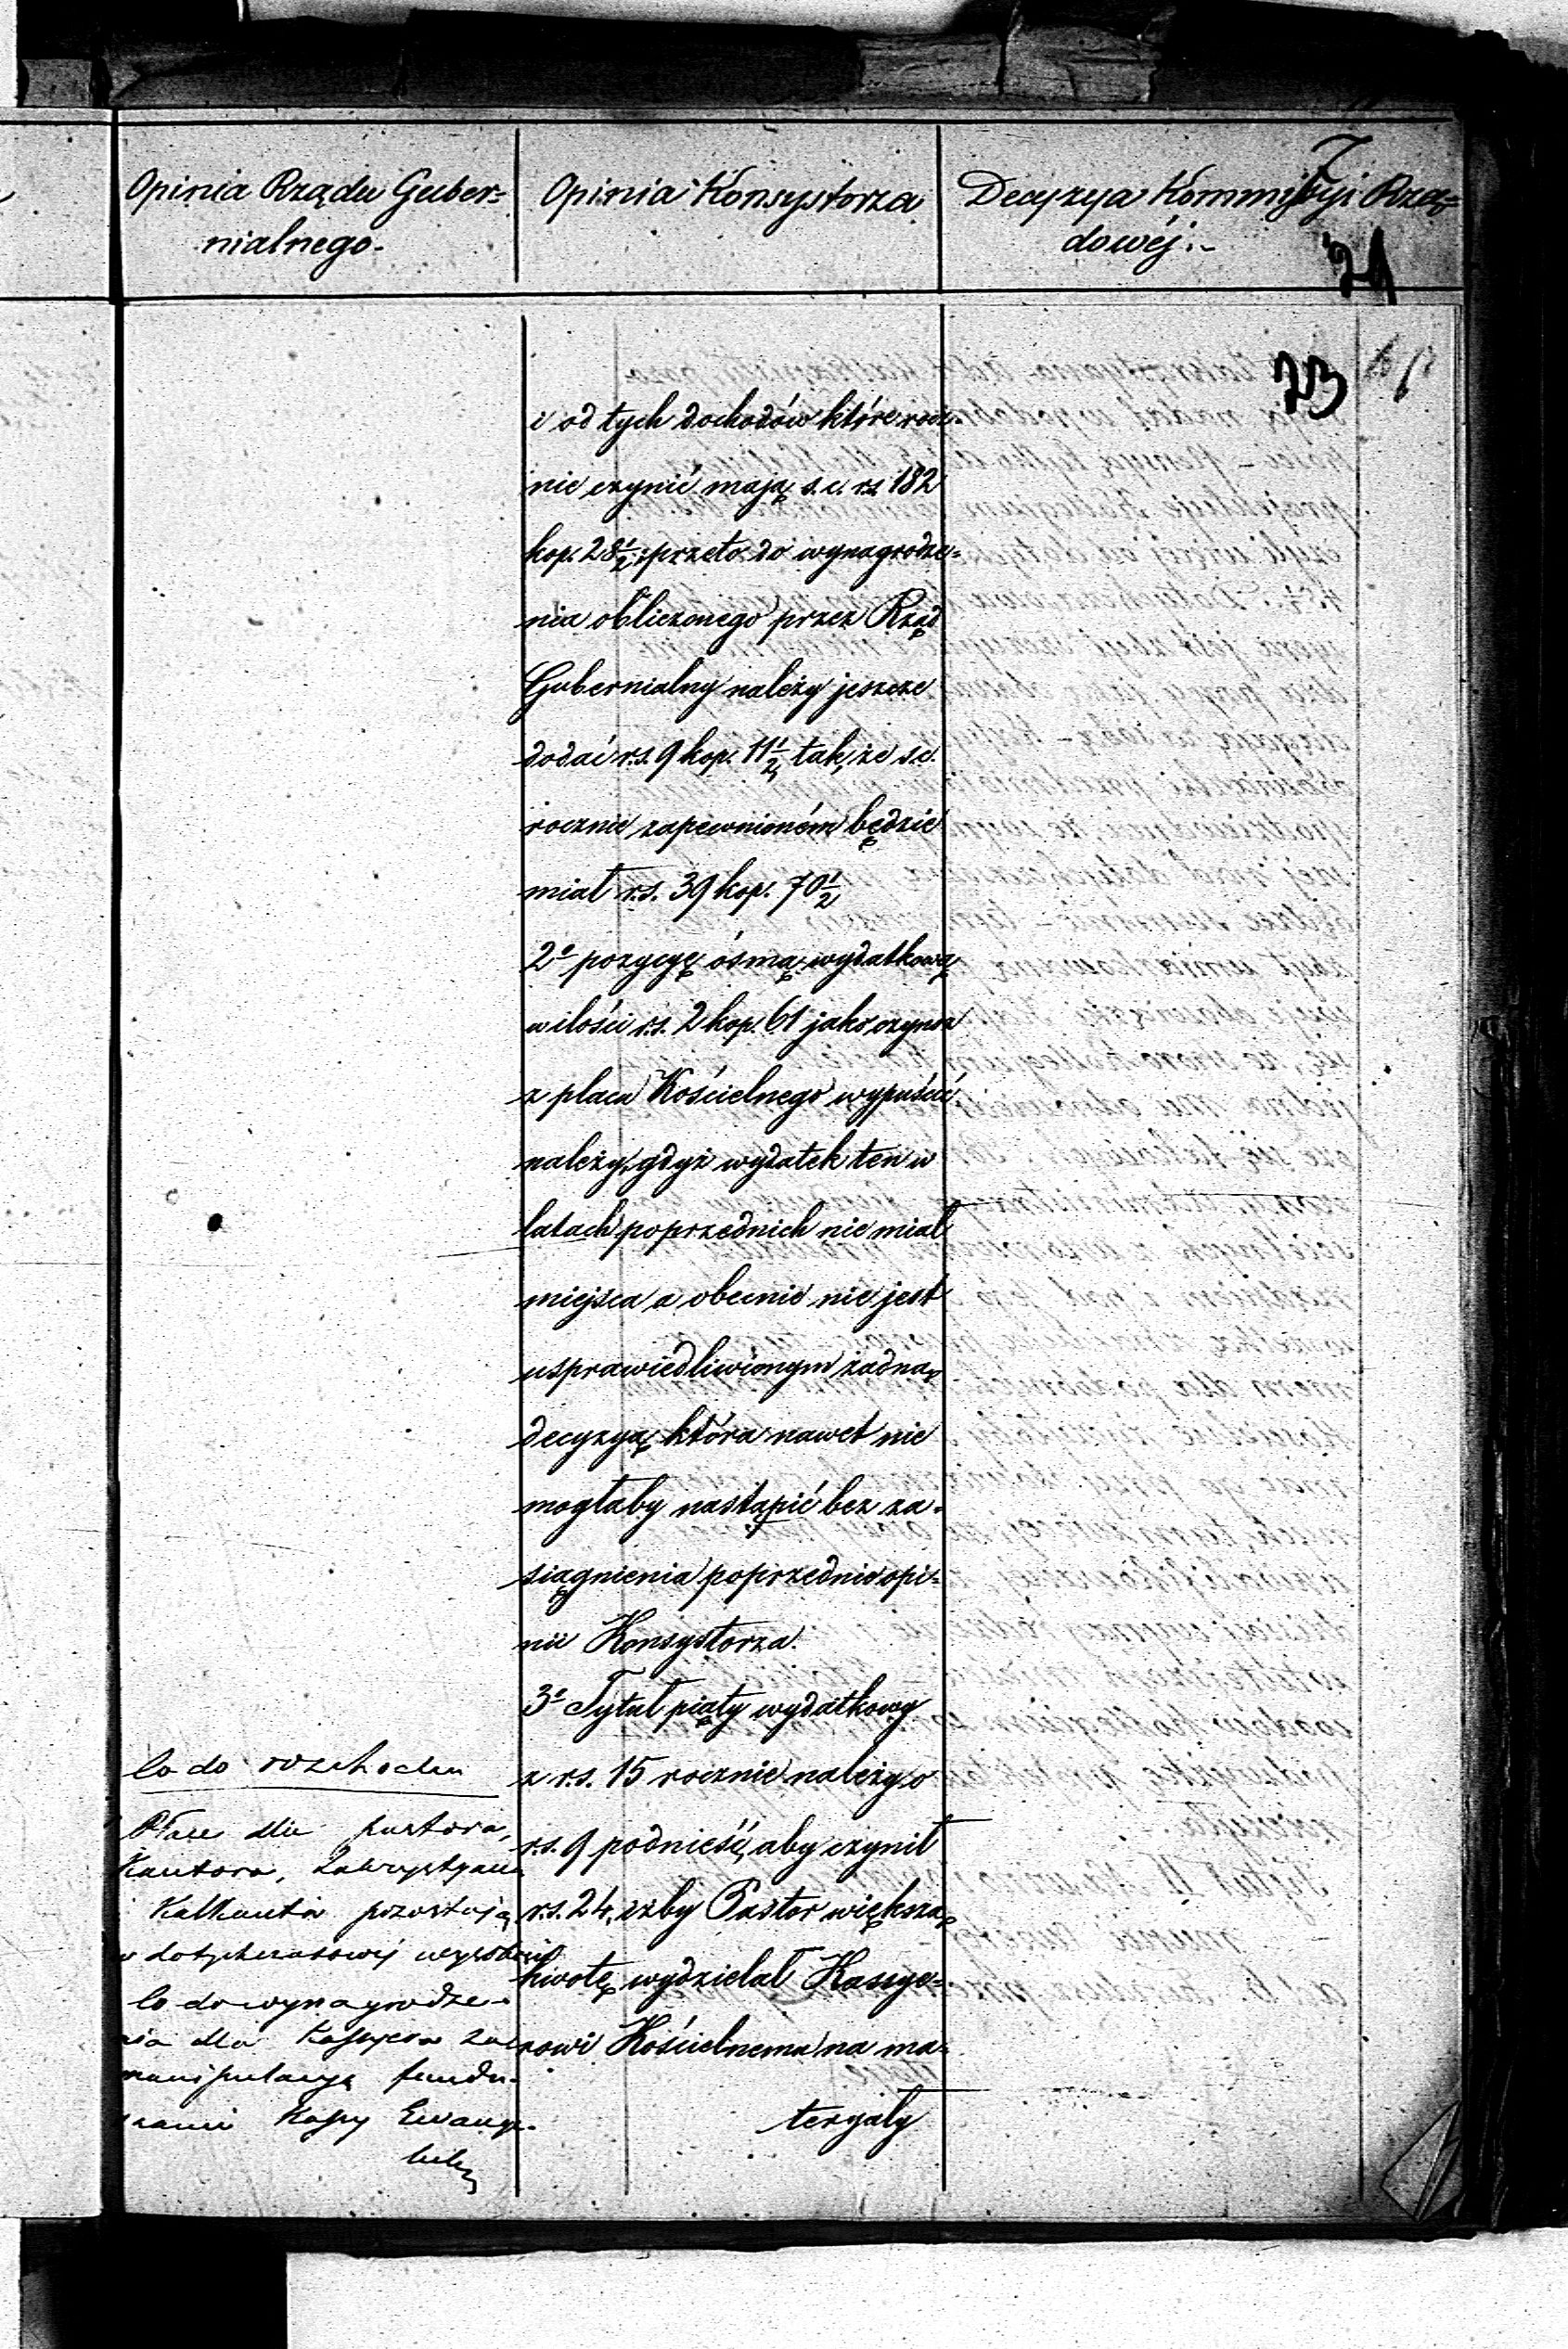 Opinia Rządu Guber=
nialnego.
Opinia Konsystorza
Decyzya Kommissyi Rzą=
dowéj.
7
21
23
i od tych dochodów które rocz=
nie czynić mają s.c. rs. 182
kop. 28½ przeto do wynagrodze=
nia obliczonego przez Rząd
Gubernialny należy jeszcze
dodać r.s. 9 kop. 11½ tak, że s.c.
rocznie zapewnioném będzie
miał r.s. 39 kop. 70½
2º pozycyę ósmą wydatkową
w ilości r.s. 2 kop. 61 jako czynsz
z placu Kościelnego wypuścić
należy, gdyż wydatek ten w
latach poprzednich nie miał
miejsca a obecnie nie jest
usprawiedliwionym żadną
decyzyą która nawet nie
mogłaby nastąpić bez za=
siągnienia poprzednio opi=
nii Konsystorza.
3º Tytuł piąty wydatkowy
z r.s. 15 rocznie należy o
r.s. 9 podnieść, aby czynił
r.s. 24, iżby Pastor większą
kwotę wydzielał Kassye=
rowi Kościelnemu na ma=
teryały
Co do rozchodu
Płace dla pastora,
Kantora, Zakrystyana
i Kalkanta pozostają
w dotychczasowéj wysokości
Co do wynagrodze=
nia dla Kassyera za
manipulacyą fundu=
szami Kassy Ewange=